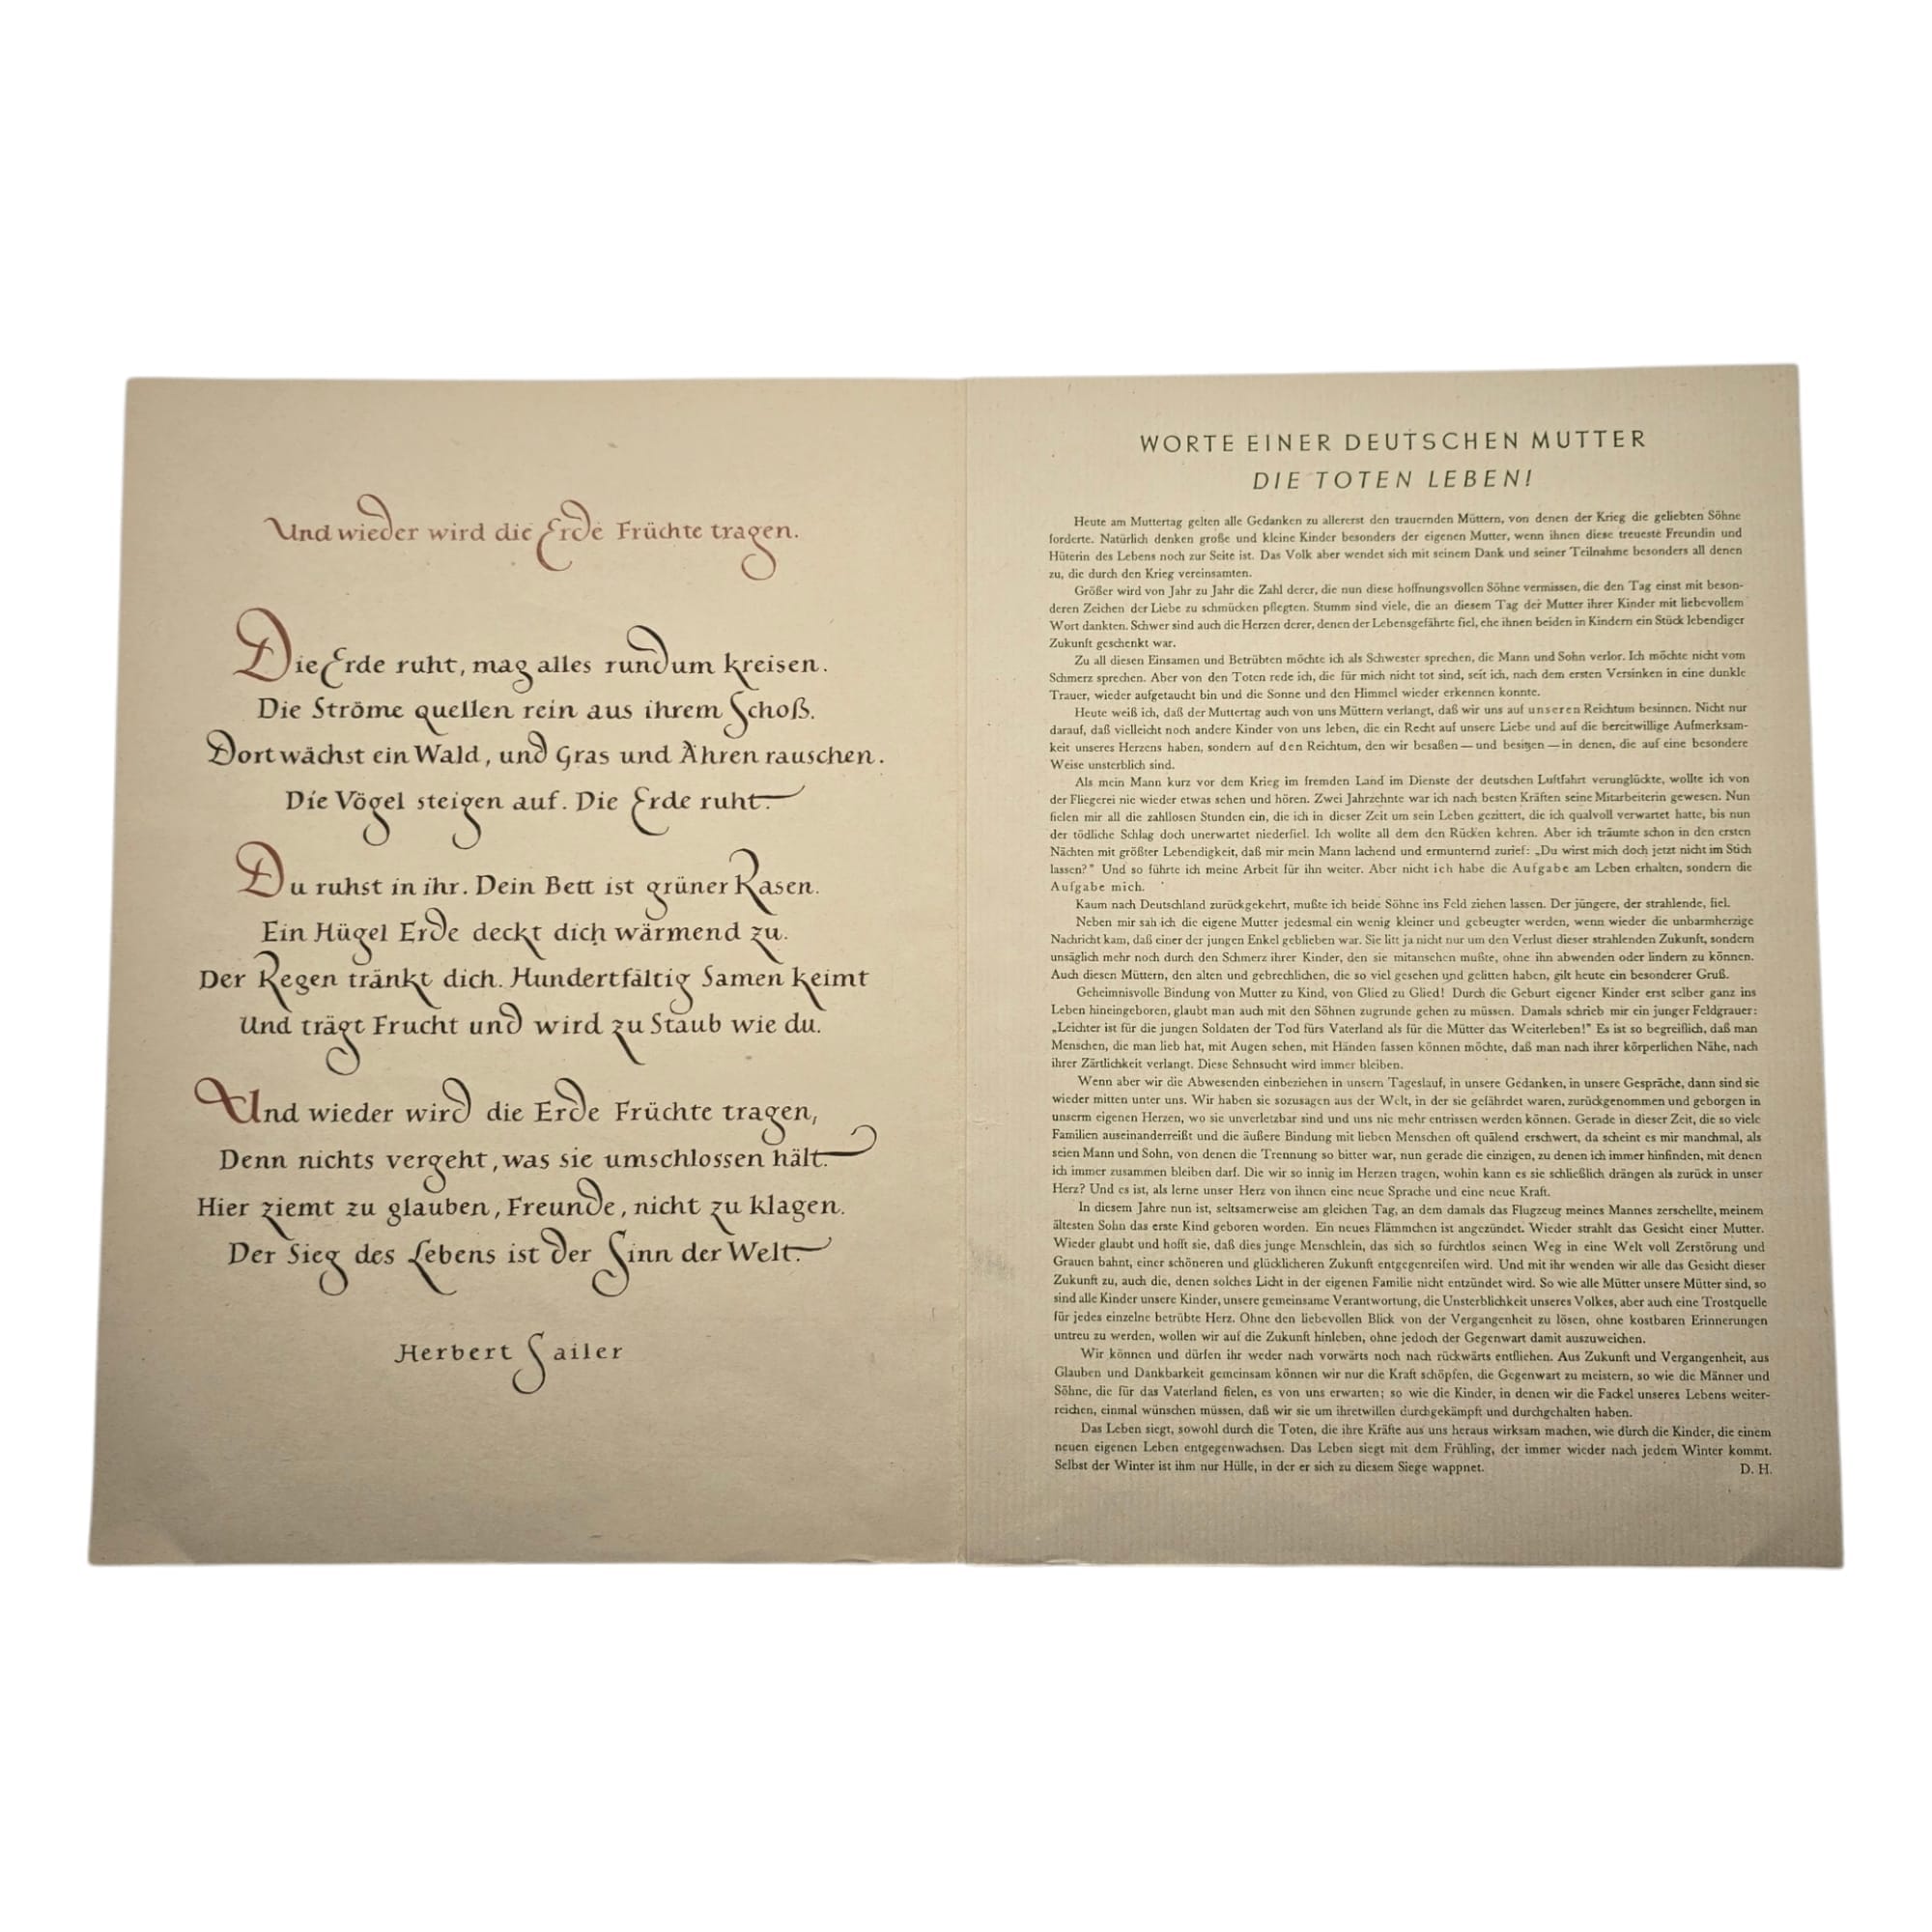 Und wieder wird die Erde Früchte tragen.
Die Erde ruht, mag alles rundum kreisen.
Die Ströme quellen rein aus ihrem Schoß.
Dort wächst ein Wald, und Gras und Ähren rauschen.
Die Vögel steigen auf. Die Erde ruht.
Du ruhst in ihr. Dein Bett ist grüner Rasen.
Ein Hügel Erde deckt dich wärmend zu.
Der Regen tränkt dich. Hundertfältig Samen keimt
Und trägt Frucht und wird zu Staub wie du.
Und wieder wird die Erde Früchte tragen,
Denn nichts vergeht, was sie umschlossen hält.
Hier ziemt zu glauben, Freunde, nicht zu klagen.
Der Sieg des Lebens ist der Sinn der Welt.
Herbert Sailer
WORTE EINER DEUTSCHEN MUTTER
DIE TOTEN LEBEN!
Heute am Muttertag gelten alle Gedanken zu allererst den trauernden Müttern, von denen der Krieg die geliebten Söhne
forderte. Natürlich denken große und kleine Kinder besonders der eigenen Mutter, wenn ihnen diese treueste Freundin und
Hüterin des Lebens noch zur Seite ist. Das Volk aber wendet sich mit seinem Dank und seiner Teilnahme besonders all denen
zu, die durch den Krieg vereinsamten.
Größer wird von Jahr zu Jahr die Zahl derer, die nun diese hoffnungsvollen Söhne vermissen, die den Tag einst mit beson-
deren Zeichen der Liebe zu schmücken pflegten. Stumm sind viele, die an diesem Tag der Mutter ihrer Kinder mit liebevollem
Wort dankten. Schwer sind auch die Herzen derer, denen der Lebensgefährte fiel, ehe ihnen beiden in Kindern ein Stück lebendiger
Zukunft geschenkt war.
Zu all diesen Einsamen und Betrübten möchte ich als Schwester sprechen, die Mann und Sohn verlor. Ich möchte nicht vom
Schmerz sprechen. Aber von den Toten rede ich, die für mich nicht tot sind, seit ich, nach dem ersten Versinken in eine dunkle
Trauer, wieder aufgetaucht bin und die Sonne und den Himmel wieder erkennen konnte.
Heute weiß ich, daß der Muttertag auch von uns Müttern verlangt, daß wir uns auf unseren Reichtum besinnen. Nicht nur
darauf, daß vielleicht noch andere Kinder von uns leben, die ein Recht auf unsere Liebe und auf die bereitwillige Aufmerksam-
keit unseres Herzens haben, sondern auf den Reichtum, den wir besaßen — und besitzen — in denen, die auf eine besondere
Weise unsterblich sind.
Als mein Mann kurz vor dem Krieg im fremden Land im Dienste der deutschen Luftfahrt verunglückte, wollte ich von
der Fliegerei nie wieder etwas sehen und hören. Zwei Jahrzehnte war ich nach besten Kräften seine Mitarbeiterin gewesen. Nun
fielen mir all die zahllosen Stunden ein, die ich in dieser Zeit um sein Leben gezittert, die ich qualvoll verwartet hatte, bis nun
der tödliche Schlag doch unerwartet niederfiel. Ich wollte all dem den Rücken kehren. Aber ich träumte schon in den ersten
Nächten mit größter Lebendigkeit, daß mir mein Mann lachend und ermunternd zurief: „Du wirst mich doch jetzt nicht im Stich
lassen?" Und so führte ich meine Arbeit für ihn weiter. Aber nicht ich habe die Aufgabe am Leben erhalten, sondern die
Aufgabe mich.
Kaum nach Deutschland zurückgekehrt, mußte ich beide Söhne ins Feld ziehen lassen. Der jüngere, der strahlende, fiel.
Neben mir sah ich die eigene Mutter jedesmal ein wenig kleiner und gebeugter werden, wenn wieder die unbarmherzige
Nachricht kam, daß einer der jungen Enkel geblieben war. Sie litt ja nicht nur um den Verlust dieser strahlenden Zukunft, sondern
unsäglich mehr noch durch den Schmerz ihrer Kinder, den sie mitansehen mußte, ohne ihn abwenden oder lindern zu können.
Auch diesen Müttern, den alten und gebrechlichen, die so viel gesehen und gelitten haben, gilt heute ein besonderer Gruß.
Geheimnisvolle Bindung von Mutter zu Kind, von Glied zu Glied! Durch die Geburt eigener Kinder erst selber ganz ins
Leben hineingeboren, glaubt man auch mit den Söhnen zugrunde gehen zu müssen. Damals schrieb mir ein junger Feldgrauer:
„Leichter ist für die jungen Soldaten der Tod fürs Vaterland als für die Mütter das Weiterleben!" Es ist so begreiflich, daß man
Menschen, die man lieb hat, mit Augen sehen, mit Händen fassen können möchte, daß man nach ihrer körperlichen Nähe, nach
ihrer Zärtlichkeit verlangt. Diese Sehnsucht wird immer bleiben.
Wenn aber wir die Abwesenden einbeziehen in unsern Tageslauf, in unsere Gedanken, in unsere Gespräche, dann sind sie
wieder mitten unter uns. Wir haben sie sozusagen aus der Welt, in der sie gefährdet waren, zurückgenommen und geborgen in
unserm eigenen Herzen, wo sie unverletzbar sind und uns nie mehr entrissen werden können. Gerade in dieser Zeit, die so viele
Familien auseinanderreißt und die äußere Bindung mit lieben Menschen oft quälend erschwert, da scheint es mir manchmal, als
seien Mann und Sohn, von denen die Trennung so bitter war, nun gerade die einzigen, zu denen ich immer hinfinden, mit denen
ich immer zusammen bleiben darf. Die wir so innig im Herzen tragen, wohin kann es sie schließlich drängen als zurück in unser
Herz? Und es ist, als lerne unser Herz von ihnen eine neue Sprache und eine neue Kraft.
In diesem Jahre nun ist, seltsamerweise am gleichen Tag, an dem damals das Flugzeug meines Mannes zerschellte, meinem
ältesten Sohn das erste Kind geboren worden. Ein neues Flämmchen ist angezündet. Wieder strahlt das Gesicht einer Mutter.
Wieder glaubt und hofft sie, daß dies junge Menschlein, das sich so furchtlos seinen Weg in eine Welt voll Zerstörung und
Grauen bahnt, einer schöneren und glücklicheren Zukunft entgegenreifen wird. Und mit ihr wenden wir alle das Gesicht dieser
Zukunft zu, auch die, denen solches Licht in der eigenen Familie nicht entzündet wird. So wie alle Mütter unsere Mütter sind, so
sind alle Kinder unsere Kinder, unsere gemeinsame Verantwortung, die Unsterblichkeit unseres Volkes, aber auch eine Trostquelle
für jedes einzelne betrübte Herz. Ohne den liebevollen Blick von der Vergangenheit zu lösen, ohne kostbaren Erinnerungen
untreu zu werden, wollen wir auf die Zukunft hinleben, ohne jedoch der Gegenwart damit auszuweichen.
Wir können und dürfen ihr weder nach vorwärts noch nach rückwärts entfliehen. Aus Zukunft und Vergangenheit, aus
Glauben und Dankbarkeit gemeinsam können wir nur die Kraft schöpfen, die Gegenwart zu meistern, so wie die Männer und
Söhne, die für das Vaterland fielen, es von uns erwarten; so wie die Kinder, in denen wir die Fackel unseres Lebens weiter-
reichen, einmal wünschen müssen, daß wir sie um ihretwillen durchgekämpft und durchgehalten haben.
Das Leben siegt, sowohl durch die Toten, die ihre Kräfte aus uns heraus wirksam machen, wie durch die Kinder, die einem
neuen eigenen Leben entgegenwachsen. Das Leben siegt mit dem Frühling, der immer wieder nach jedem Winter kommt.
Selbst der Winter ist ihm nur Hülle, in der er sich zu diesem Siege wappnet. D. H.